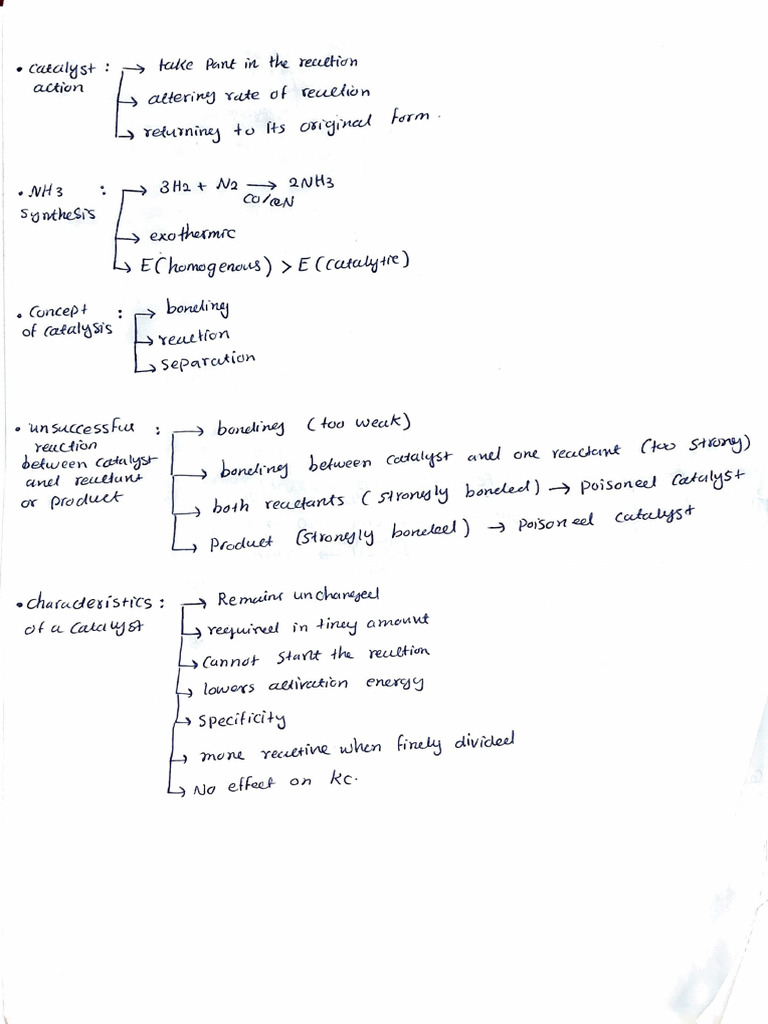 • catalyst action : → take part in the reaction
→ altering rate of reaction
→ returning to its original form.
• NH3 synthesis : → 3H2 + N2 → 2NH3
→ exothermic
→ E(homogenous) > E(catalytic)
• Concept of catalysis : → bonding
→ reaction
→ separation
• unsuccessful reaction between catalyst and reactant or product : → bonding (too weak)
→ bonding between catalyst and one reactant (too strong)
→ both reactants (strongly bonded) → poisoned catalyst
→ Product (strongly bonded) → poisoned catalyst
• characteristics of a catalyst : → Remains unchanged
→ required in tiney amount
→ cannot start the reaction
→ lowers activation energy
→ specificity
→ more reactive when finely divided
→ No effect on Kc.